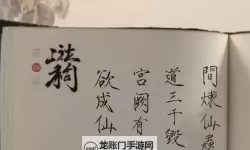 間煉仙蟲
道三千毀
宮闕有
欲成仙
龙账门手游网